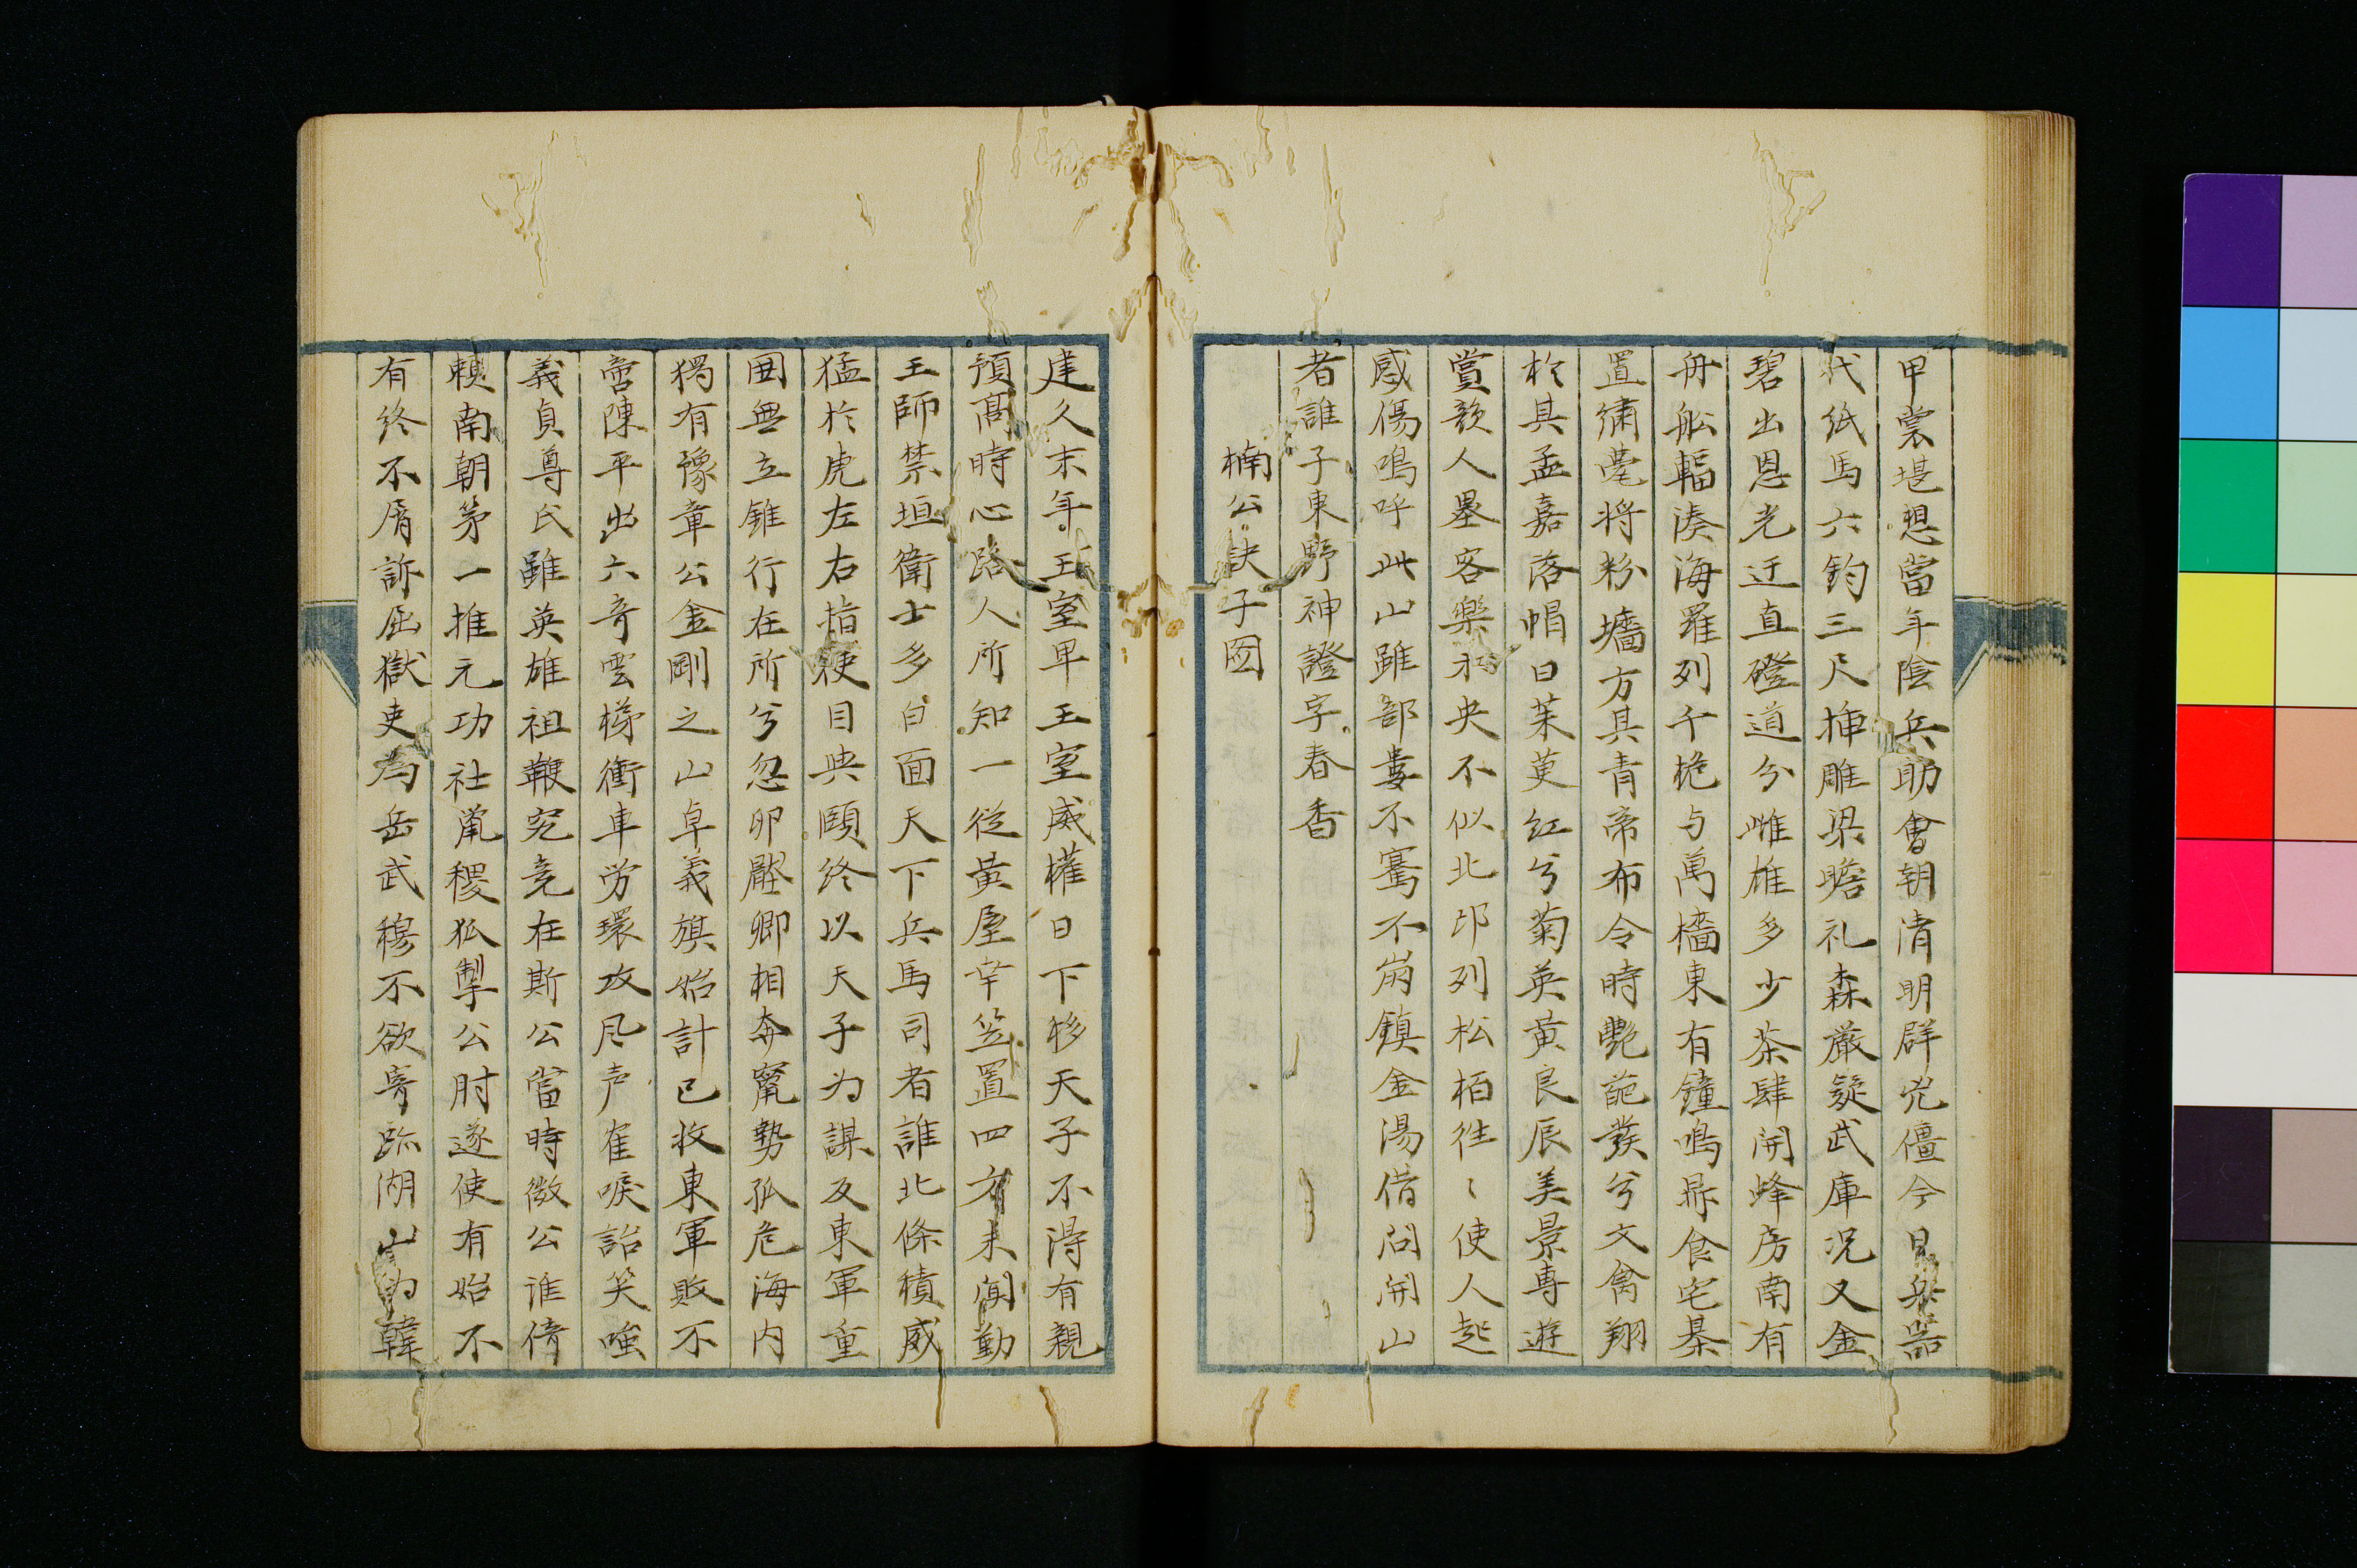 甲裳堪想當年陰兵助會朝清明群兇僵今日兵器
代紙馬六鈞三尺挿雕梁瞻礼森厳疑武庫況又金
碧出恩光迂直磴道分雌雄多少茶肆開蜂房南有
舟舩輻湊海羅列千桅与萬檣東有鐘鳴鼎食宅棊
置繍甍将粉墻方其青帝布令時艶葩發兮文禽翔
於其孟嘉落帽日茱萸紅兮菊英黄良辰美景専遊
賞歌人墨客樂未央不似北邙列松栢徃〻使人起
感傷嗚呼此山雖部婁不騫不崩鎮金湯借問開山
者誰子東野神證字春香
楠公訣子図
建久末年王室卑王室威権日下移天子不得有親
預髙時心路人所知一従黄屋幸笠置四方未聞勤
王師禁垣衛士多白面天下兵馬司者誰北條積威
猛於虎左右指使目與頤終以天子为謀反東軍重
囲無立錐行在所兮忽卵壓卿相奔竄勢孤危海内
獨有豫章公金剛之山卓義旗始計已收東軍敗不
啻陳平出六奇雲梯衝車労環攻风声隺唳詒笑嗤
義貞尊氏雖英雄祖鞭究竟在斯公當時微公誰倚
頼南朝苐一推元功社鼠稷狐掣公肘遂使有始不
有終不屑訴屈獄吏為岳武穆不欲寄跡湖山为韓